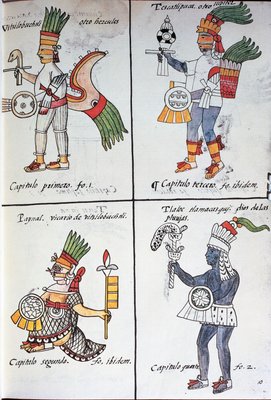 Vitzilobuchtli otro hercules
Capitulo primero. fo. 1.
Tezcatlipuca, otro
¶ Capitulo tercero. fo. ibidem.
Paynal, vicario de vitzilobuchtli.
Capitulo segundo. fo. ibidem.
Tlaloc tlamacazqui. dios de las
pluuias.
Capitulo quarto fo. 2.